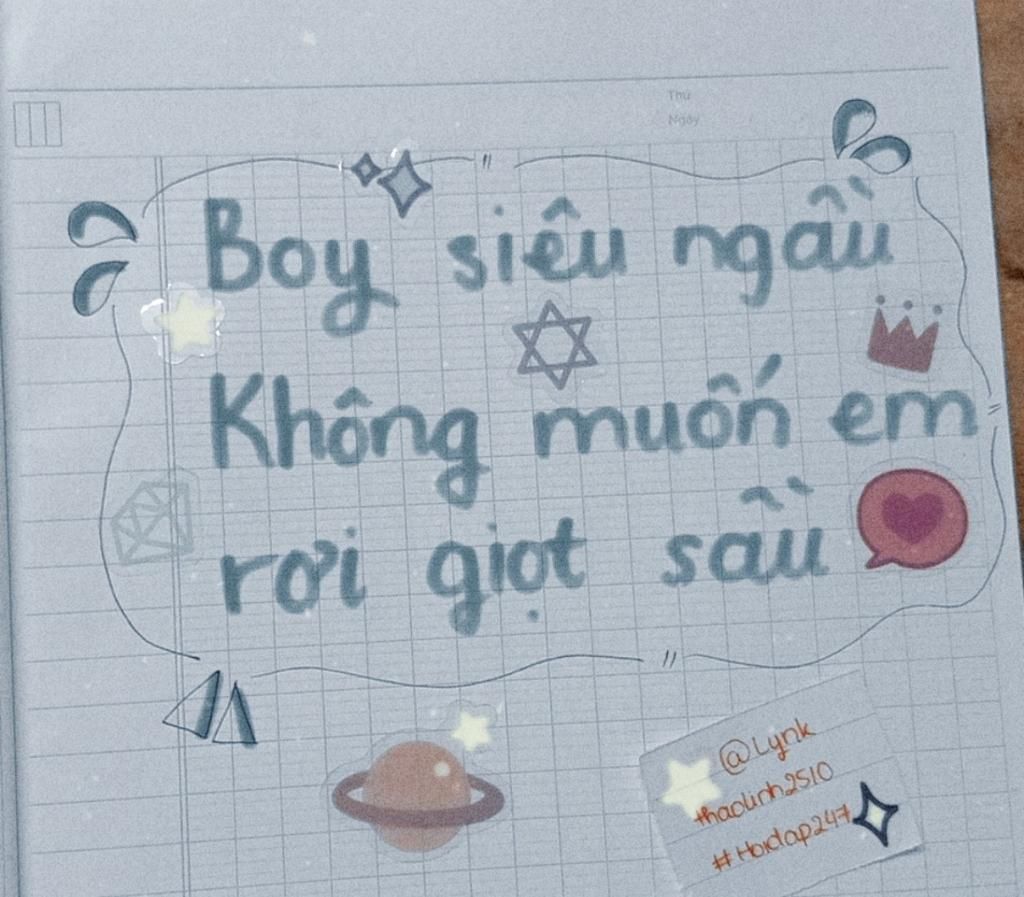 Thứ
Ngày
Boy siêu ngầu
Không muốn em
rơi giọt sầu
@Lynk
thaolinh2510
#Hoidap247